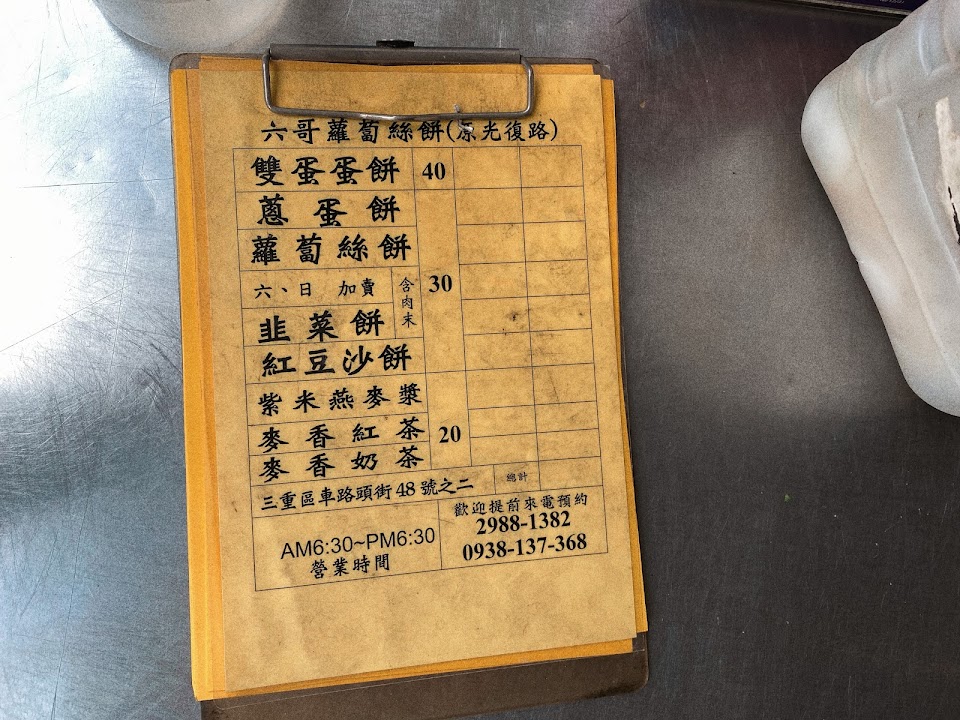 六哥蘿蔔絲餅(原光復路)
雙蛋蛋餅 40
蔥蛋餅
蘿蔔絲餅
六、日 加賣 含肉末 30
韭菜餅
紅豆沙餅
紫米燕麥漿
麥香紅茶 20
麥香奶茶
三重區車路頭街48號之二 總計
歡迎提前來電預約
2988-1382
0938-137-368
AM6:30~PM6:30
營業時間